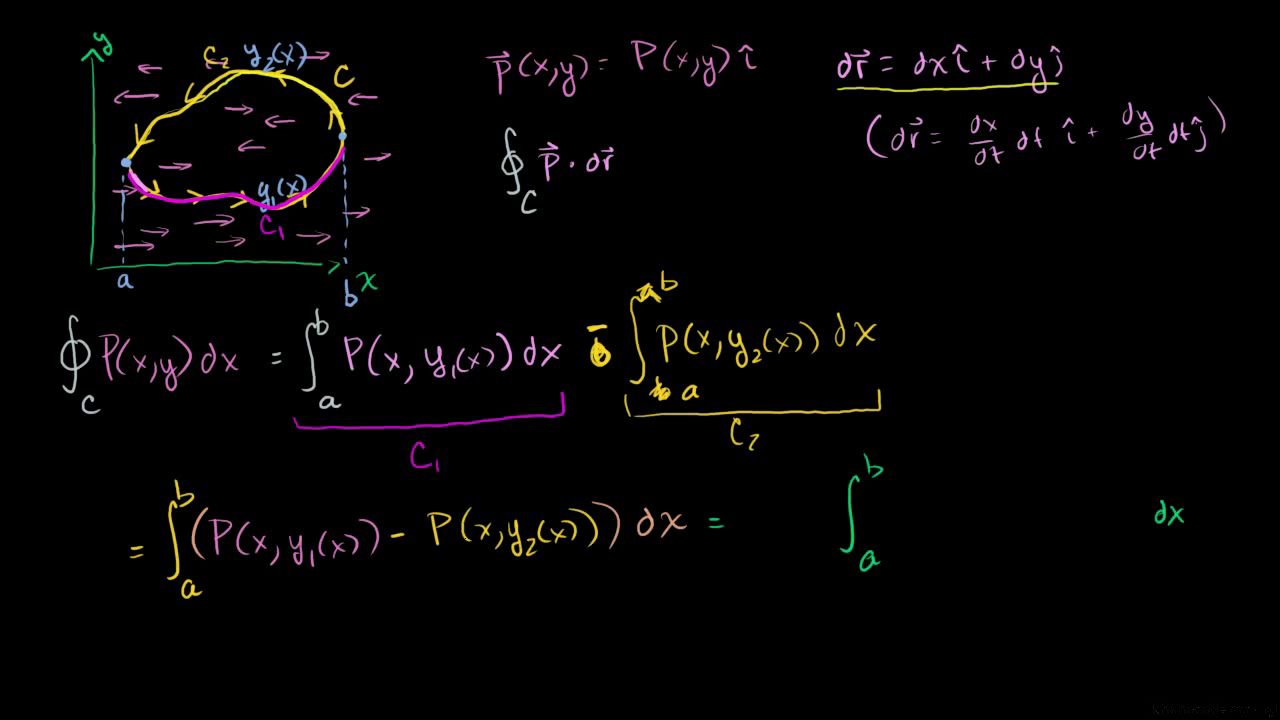 y
C₂ y₂(x)
C
y₁(x)
C₁
a
b
x
p⃗(x,y) = P(x,y) î
dr⃗ = dx î + dy ĵ
(dr⃗ = dx/dt dt î + dy/dt dt ĵ)
∮_C p⃗ · dr⃗
∮_C P(x,y) dx = ∫_a^b P(x, y₁(x)) dx - ∫_a^b P(x, y₂(x)) dx
C₁
C₂
= ∫_a^b (P(x, y₁(x)) - P(x, y₂(x))) dx = ∫_a^b dx